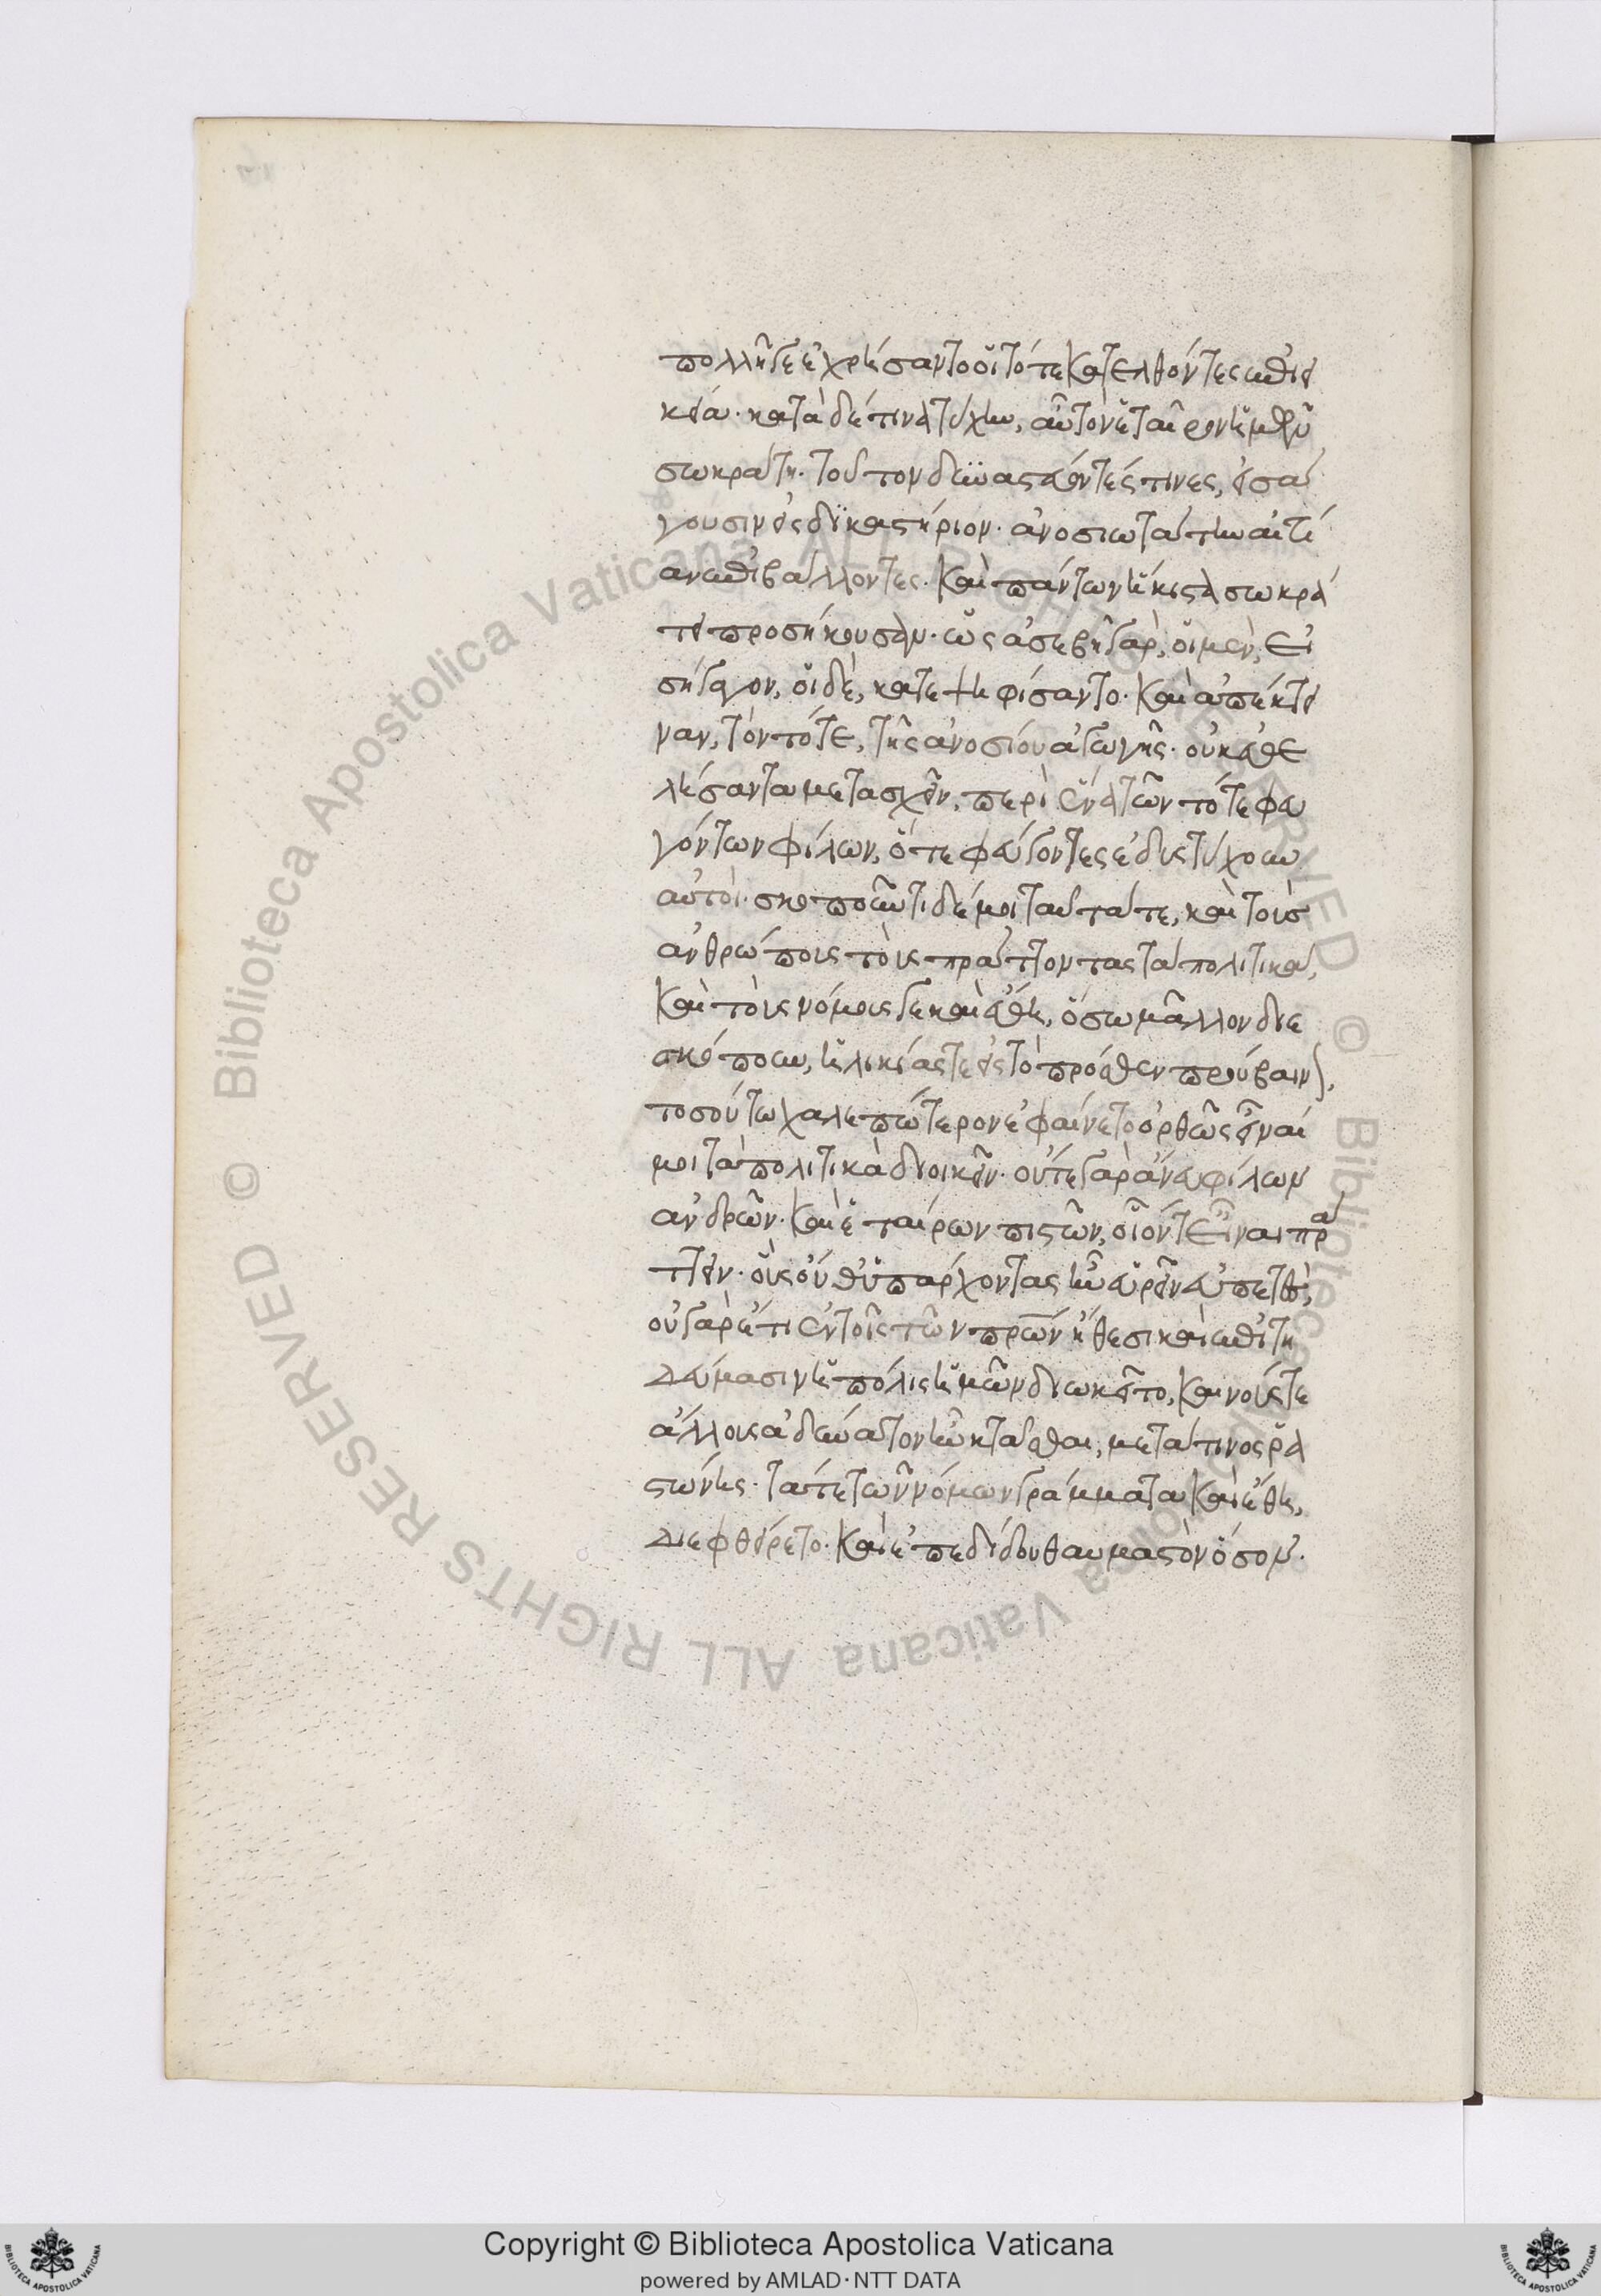 πολλῆγε ἐχρήσαντο οἱ τότε κατελθόντες ἐπιεί
κεία· κατὰ δέ τινα τύχην, αὖ τὸν ἑταῖρον ἡμῶν
σωκράτη. τοῦτον δυναστεύοντές τινες, εἰσά
γουσιν εἰς δικαστήριον· ἀνοσιωτάτην αἰτί
αν ἐπιβάλλοντες. καὶ πάντων ἥκιστα σωκρά
τει προσήκουσαν· ὡς ἀσεβῆ γὰρ, οἱ μὲν, εἰ
σήγαγον, οἱ δὲ, κατεψηφίσαντο. καὶ ἀπέκτει
ναν, τὸν τότε, τῆς ἀνοσίου ἀγωγῆς· οὐκ ἐθε
λήσαντα μετασχεῖν, περὶ ἕνα τῶν τότε φευ
γόντων φίλων, ὅτε φεύγοντες ἐδυστύχουν
αὐτοί. σκοποῦντι δέ μοι ταῦτά τε, καὶ τοὺς
ἀνθρώπους τοὺς πράττοντας τὰ πολιτικά,
καὶ τοὺς νόμους γε καὶ ἔθη, ὅσω μᾶλλον διε
σκόπουν, ἡλικίας τε εἰς τὸ πρόσθεν προύβαινον,
τοσούτω χαλεπώτερον ἐφαίνετο ὀρθῶς εἶναί
μοι τὰ πολιτικὰ διοικεῖν· οὔτε γὰρ ἄνευ φίλων
ἀνδρῶν. καὶ ἑταίρων πιστῶν, οἷόν τ' εἶναι πρά
ττειν· οὓς οὔθ' ὑπάρχοντας ἦν εὑρεῖν εὐπετές,
οὐ γὰρ ἔτι ἐν τοῖς τῶν πρων ἤθεσι καὶ ἐπιτη
δεύμασιν ἡ πόλις ἡμῶν διωκεῖτο, καινούς τε
ἄλλους ἀδύνατον ἦν κτᾶσθαι, μετά τινος ῥα
στώνης. τά τε τῶν νόμων γράμματα καὶ ἔθη,
διεφθείρετο. καὶ ἐπεδίδου θαυμαστὸν ὅσον.
Copyright © Biblioteca Apostolica Vaticana
powered by AMLAD·NTT DATA
© Biblioteca Apostolica Vaticana ALL RIGHTS RESERVED © Biblioteca Apostolica Vaticana ALL RIGHTS RESERVED